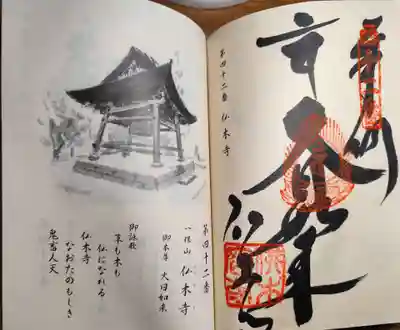 大日如来
仏木寺
第四十二番 仏木寺
第四十二番
仏木寺
御本尊 大日如来
御詠歌
草も木も
仏になれる
仏木寺
なおたのもしき
鬼畜人天